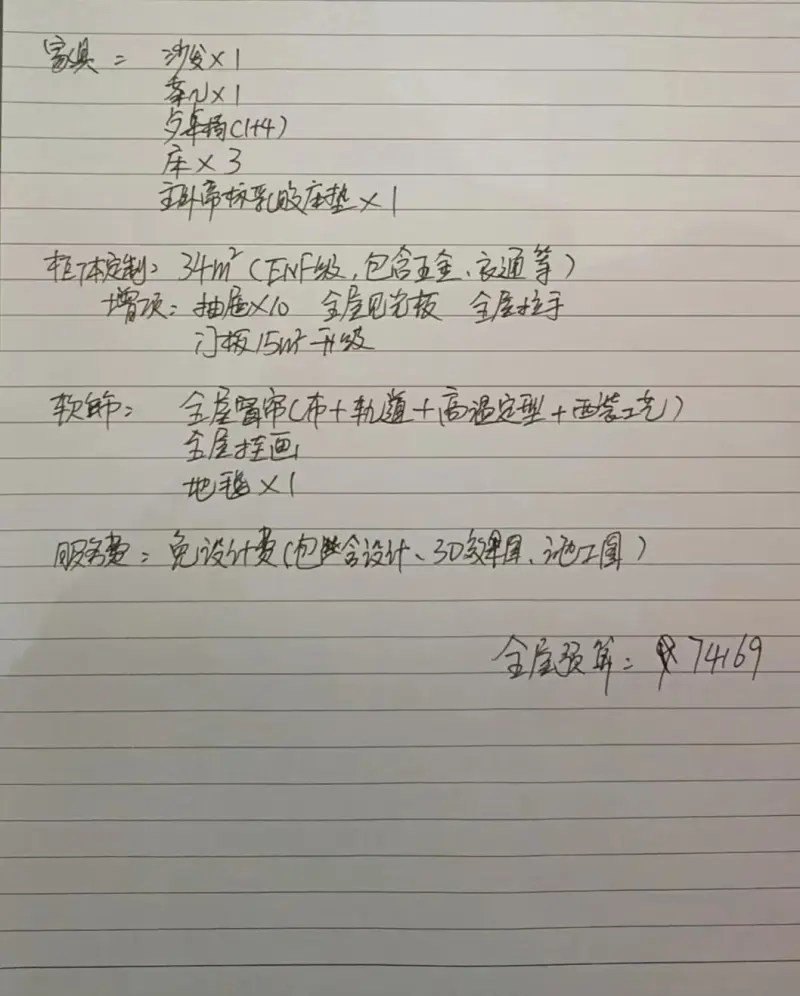 家具： 沙发×1
茶几×1
桌椅(1+4)
床×3
主卧帝标乳胶床垫×1
柜体定制： 34m²（ENF级，包含五金、衣通等）
增项：抽屉×10 全屋见光板 全屋拉手
门板15m²升级
软饰： 全屋窗帘(布+轨道+高温定型+西装工艺)
全屋挂画
地毯×1
服务费：免设计费(包含设计、3D效果图、施工图)
全屋预算：74169